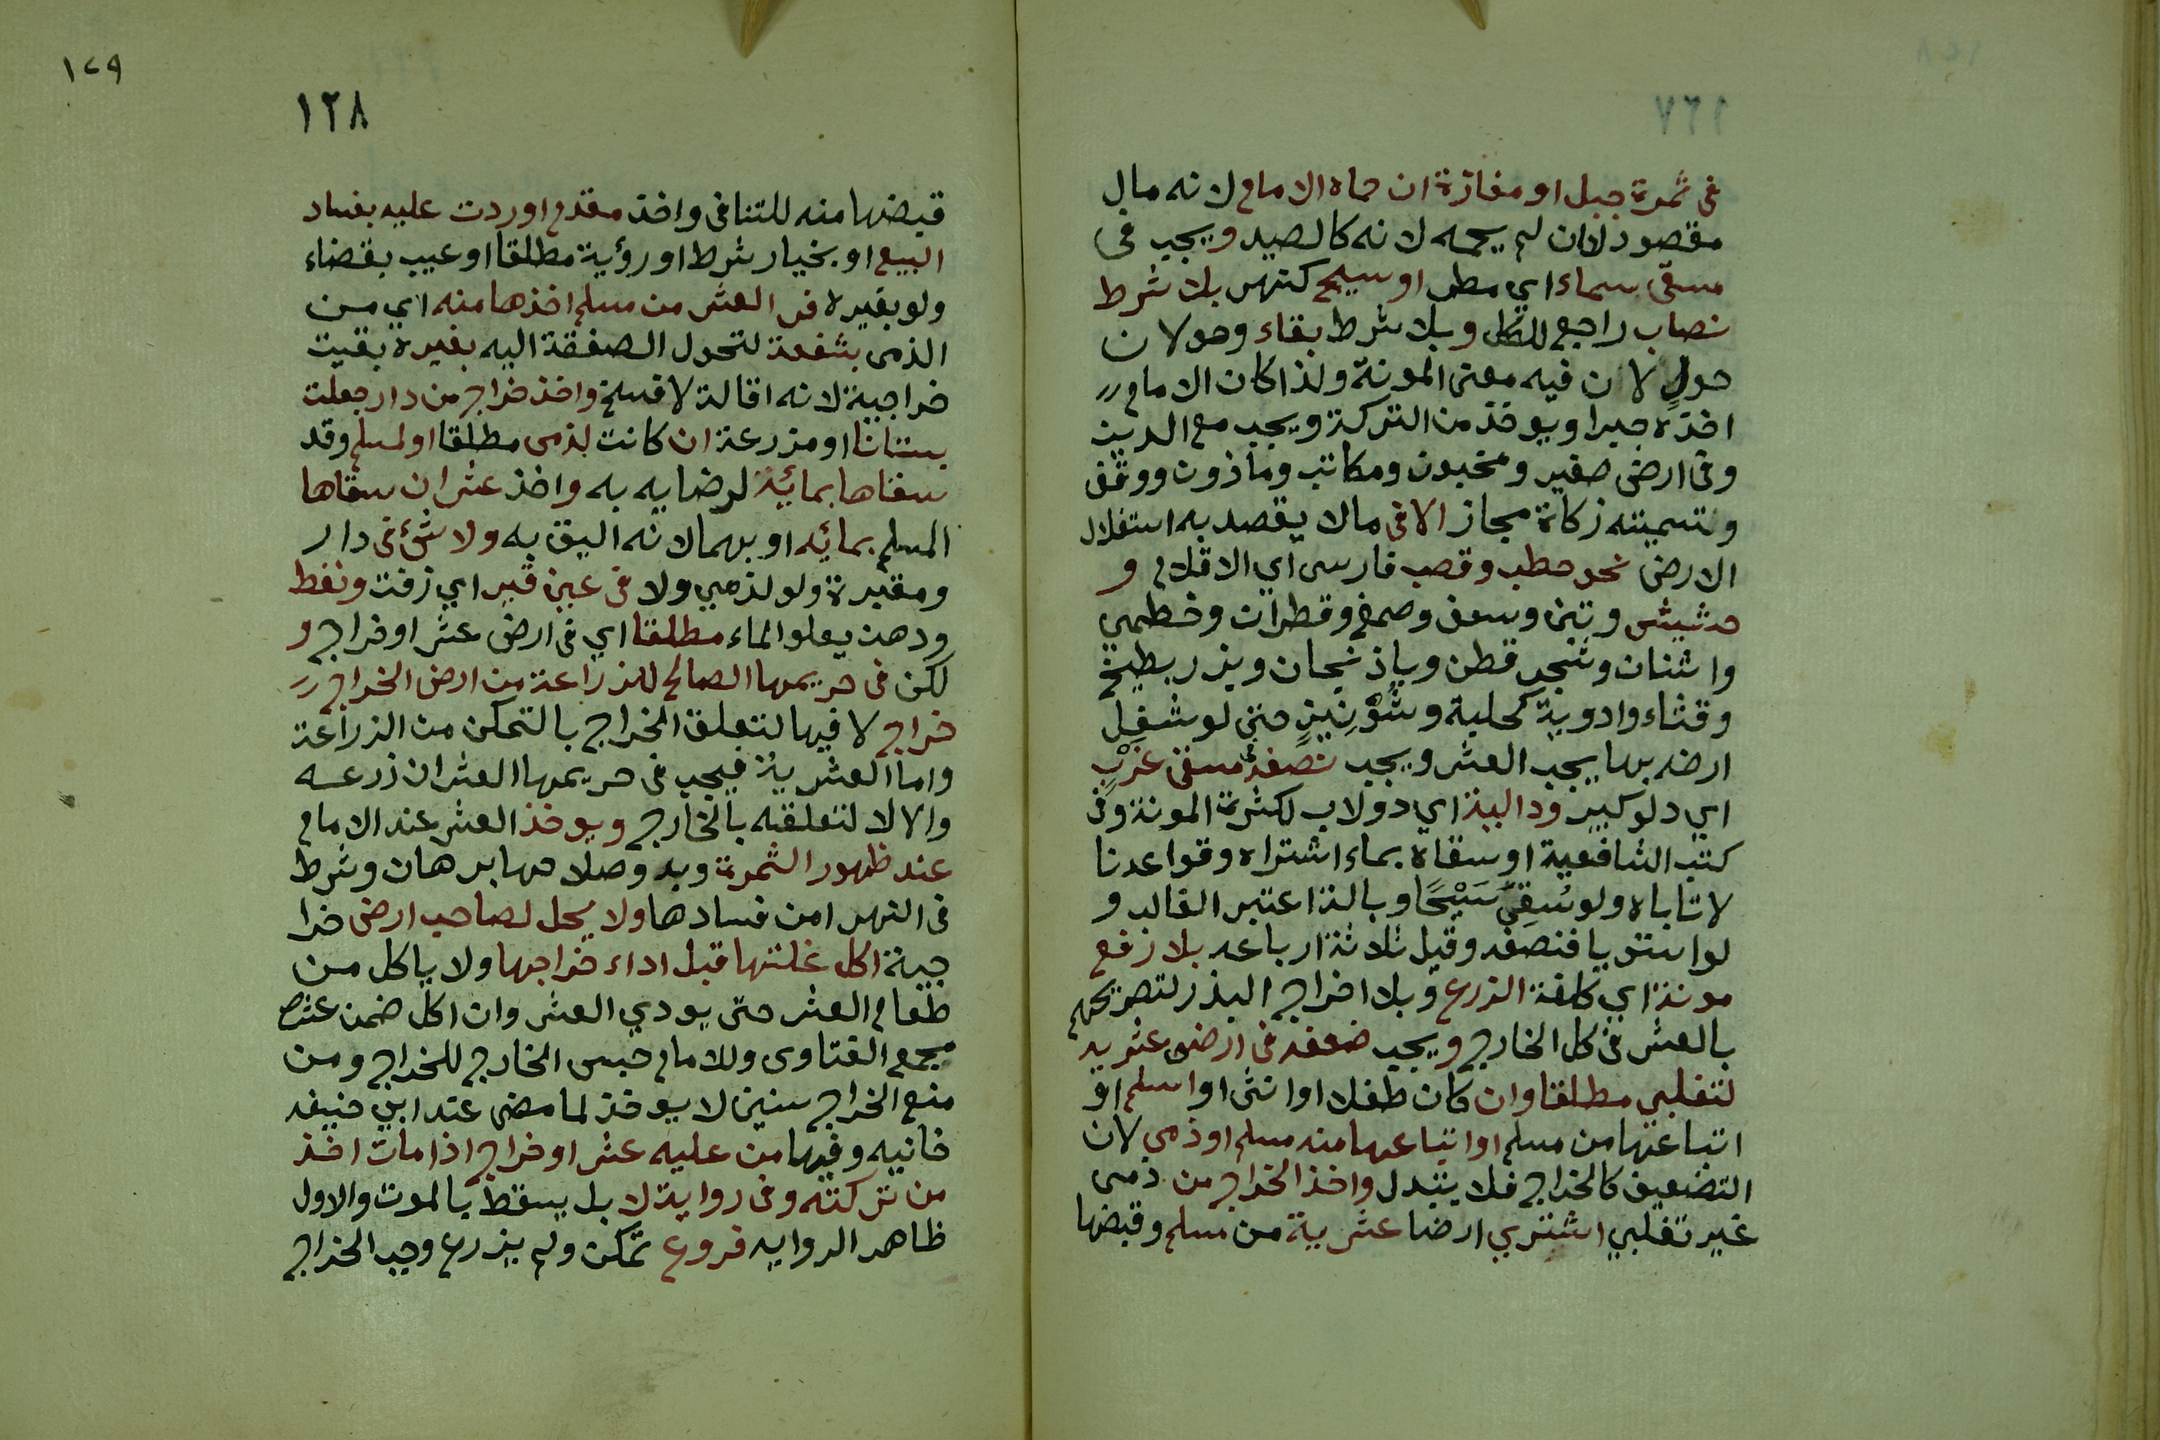 في ثمرة جبل او مفازة ان حماه الامام لانه مال
مقصود لا ان لم يحمه لانه كالصيد ويجب في
مسقى سماء اي مطر او سيح كنهر بلا شرط
نصاب راجع للكل وبلا شرط بقاء وحولان
حول لان فيه معنى المونة ولذا كان الامام
اخذه جبرا ويوخذ من التركة ويجب مع الدين
وفي ارض صغير ومجنون ومكاتب وماذون ووقف
وتسميته زكاة مجاز الا في ما لا يقصد به استغلال
الارض نحو حطب وقصب فارسى اي الاقلام و
حشيش وتبن وسعف وصمغ وقطران وخطمي
واشنان وشجر قطن وباذنجان وبزر بطيخ
وقثاء وادوية كحلبة وشُوْنِيْزٍ حتى لو شغل
ارضه بها يجب العشر ويجب نصفه في مسقى غَرْبٍ
اي دلو كبير ودالية اي دولاب لكثرة المونة وفي
كتب الشافعية او سقاه بماء اشتراه وقواعدنا
لا تاباه ولو سُقِيَ سَيْحًا وبالذا اعتبر الغالب و
لو استويا فنصفه وقيل ثلاثة ارباعه بلا رفع
مونة اي كلفة الزرع وبلا اخراج البذر لتصريحهم
بالعشر في كل الخارج ويجب ضعفه في ارض عشريه
لتغلبي مطلقا وان كان طفلا او انثى او اسلم او
ابتاعها من مسلم او ابتاعها منه مسلم او ذمي لان
التضعيف كالخراج فلا يتبدل واخذ الخراج من ذمى
غير تغلبي اشترى ارضا عشرية من مسلم وقبضها
١٢٩
١٢٨
قبضها منه للتنافى واخذ مقدم او ردت عليه بفساد
البيع او بخيار شرط او رؤية مطلقا او عيب بقضاء
ولو بغيره في العشر من مسلم اخذها منه اي من
الذمى بشفعة لتحول الصفقة اليه بغيره بقيت
خراجية لانه اقالة لا فسخ واخذ خراج من دار جعلت
بستانا او مزرعة ان كانت لذمى مطلقا او لمسلم وقد
سقاها بمائه لرضايه به واخذ عشر ان سقاها
المسلم بمائه او بهما لانه اليق به ولا شئ في دار
ومقبرة ولو لذمي ولا في عين قير اي زفت ونفط
ودهن يعلو الماء مطلقا اي في ارض عشر او خراج و
لكن في حريمها الصالح للزراعة من ارض الخراج
خراج لا فيها لتعلق الخراج بالتمكن من الزراعة
واما العشرية فيجب في حريمها العشر ان زرعه
والا لا لتعلقه بالخارج ويوخذ العشر عند الامام
عند ظهور الثمرة وبدو صلاحها برهان وشرط
في النهر امن فسادها ولا يحل لصاحب ارض خرا
جية اكل غلتها قبل اداء خراجها ولا ياكل من
طعام العشر حتى يودي العشر وان اكل ضمن عشره
مجمع الفتاوى وللامام حبس الخارج للخراج ومن
منع الخراج سنين لا يوخذ لما مضى عند ابي حنيفه
خانيه وفيها من عليه عشر او خراج اذا مات اخذ
من تركته وفي رواية لا بل يسقط بالموت والاول
ظاهر الروايه فروع تمكن ولم يزرع وجب الخراج